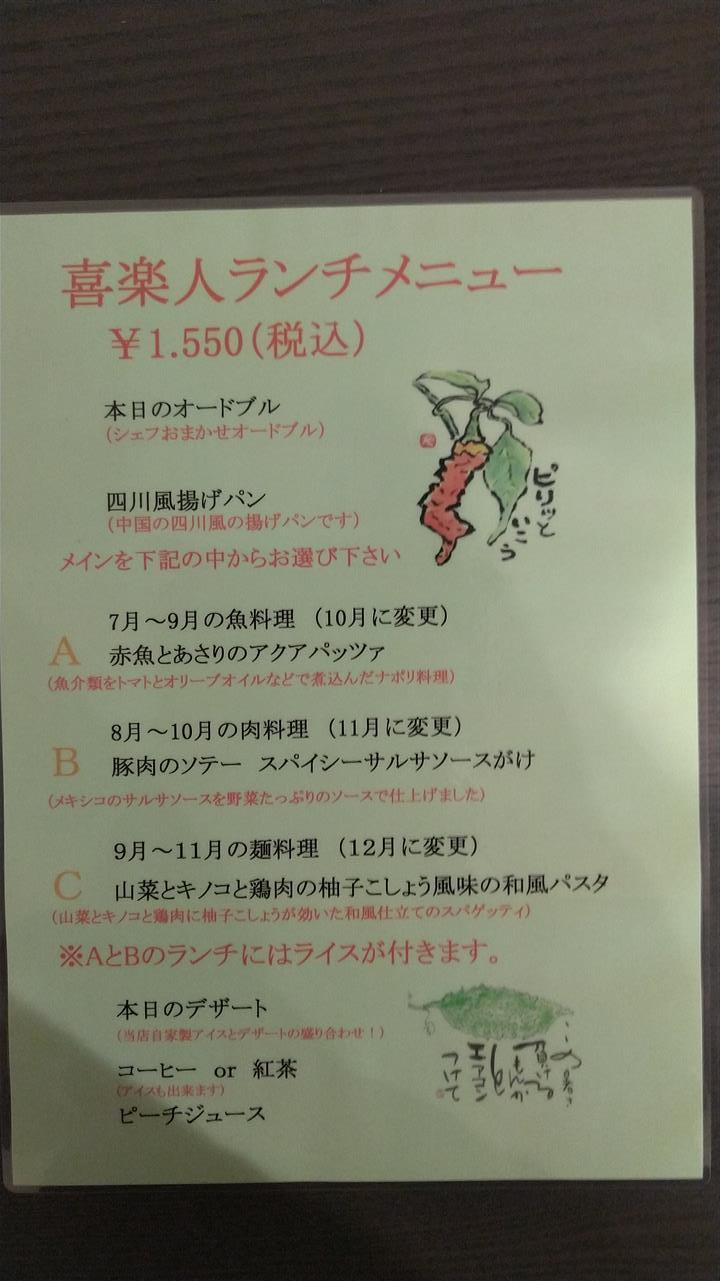 喜楽人ランチメニュー
￥1.550(税込)
本日のオードブル
(シェフおまかせオードブル)
四川風揚げパン
(中国の四川風の揚げパンです)
ピリッと
いこう
メインを下記の中からお選び下さい
7月～9月の魚料理 (10月に変更)
A 赤魚とあさりのアクアパッツァ
(魚介類をトマトとオリーブオイルなどで煮込んだナポリ料理)
8月～10月の肉料理 (11月に変更)
B 豚肉のソテー スパイシーサルサソースがけ
(メキシコのサルサソースを野菜たっぷりのソースで仕上げました)
9月～11月の麺料理 (12月に変更)
C 山菜とキノコと鶏肉の柚子こしょう風味の和風パスタ
(山菜とキノコと鶏肉に柚子こしょうが効いた和風仕立てのスパゲッティ)
※AとBのランチにはライスが付きます。
本日のデザート
(当店自家製アイスとデザートの盛り合わせ！)
コーヒー or 紅茶
(アイスも出来ます)
ピーチジュース
この暑さ
負けるもんか
エアコン
つけて